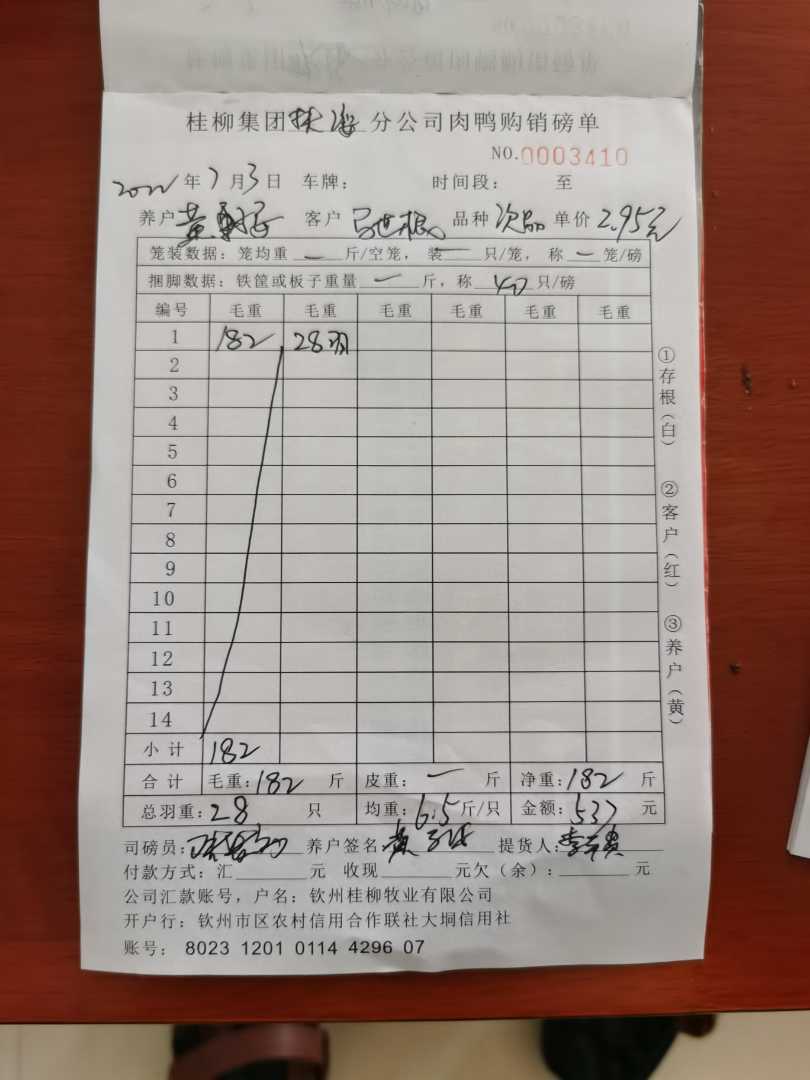 桂柳集团 分公司肉鸭购销磅单
NO.0003410
2022年7月3日 车牌： 时间段： 至
养户黄 客户 品种次品 单价2.95元
笼装数据：笼均重 — 斤/空笼，装 — 只/笼，称 — 笼/磅
捆脚数据：铁筐或板子重量 — 斤，称 40 只/磅
编号 毛重 毛重 毛重 毛重 毛重 毛重
1 182 28羽
2
3
4
5
6
7
8
9
10
11
12
13
14
小计 182
合计 毛重：182 斤 皮重：— 斤 净重：182 斤
总羽重：28 只 均重：6.5斤/只 金额：537 元
司磅员： 养户签名：黄 提货人：
付款方式：汇 元 收现 元欠（余）： 元
公司汇款账号，户名：钦州桂柳牧业有限公司
开户行：钦州市区农村信用合作联社大垌信用社
账号：8023 1201 0114 4296 07
①存根（白）
②客户（红）
③养户（黄）